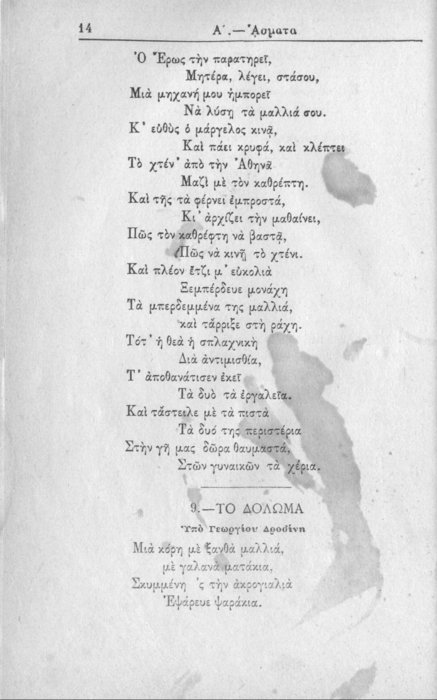 14
Α΄.—ᾌσματα
Ὁ Ἔρως τὴν παρατηρεῖ,
Μητέρα, λέγει, στάσου,
Μιὰ μηχανή μου ἠμπορεῖ
Νὰ λύσῃ τὰ μαλλιά σου.
Κ᾽ εὐθὺς ὁ μάργελος κινᾷ,
Καὶ πάει κρυφά, καὶ κλέπτει
Τὸ χτέν᾽ ἀπὸ τὴν Ἀθηνᾶ
Μαζὶ μὲ τὸν καθρέπτη.
Καὶ τῆς τὰ φέρνει ἐμπροστά,
Κι᾽ ἀρχίζει τὴν μαθαίνει,
Πῶς τὸν καθρέφτη νὰ βαστᾷ,
Πῶς νὰ κινῇ τὸ χτένι.
Καὶ πλέον ἔτζι μ᾽ εὐκολιὰ
Ξεμπέρδευε μονάχη
Τὰ μπερδεμμένα της μαλλιά,
καὶ τἄρριξε στὴ ράχη.
Τότ᾽ ἡ θεὰ ἡ σπλαχνικὴ
Διὰ ἀντιμισθία,
Τ᾽ ἀποθανάτισεν ἐκεῖ
Τὰ δυὸ τὰ ἐργαλεῖα.
Καὶ τἄστειλε μὲ τὰ πιστὰ
Τὰ δυό της περιστέρια
Στὴν γῆ μας δῶρα θαυμαστά,
Στῶν γυναικῶν τὰ χέρια.
9.—ΤΟ ΔΟΛΩΜΑ
Ὑπὸ Γεωργίου Δροσίνη
Μιὰ κόρη μὲ ξανθὰ μαλλιά,
μὲ γαλανὰ ματάκια,
Σκυμμένη ᾽ς τὴν ἀκρογιαλιὰ
Ἐψάρευε ψαράκια.